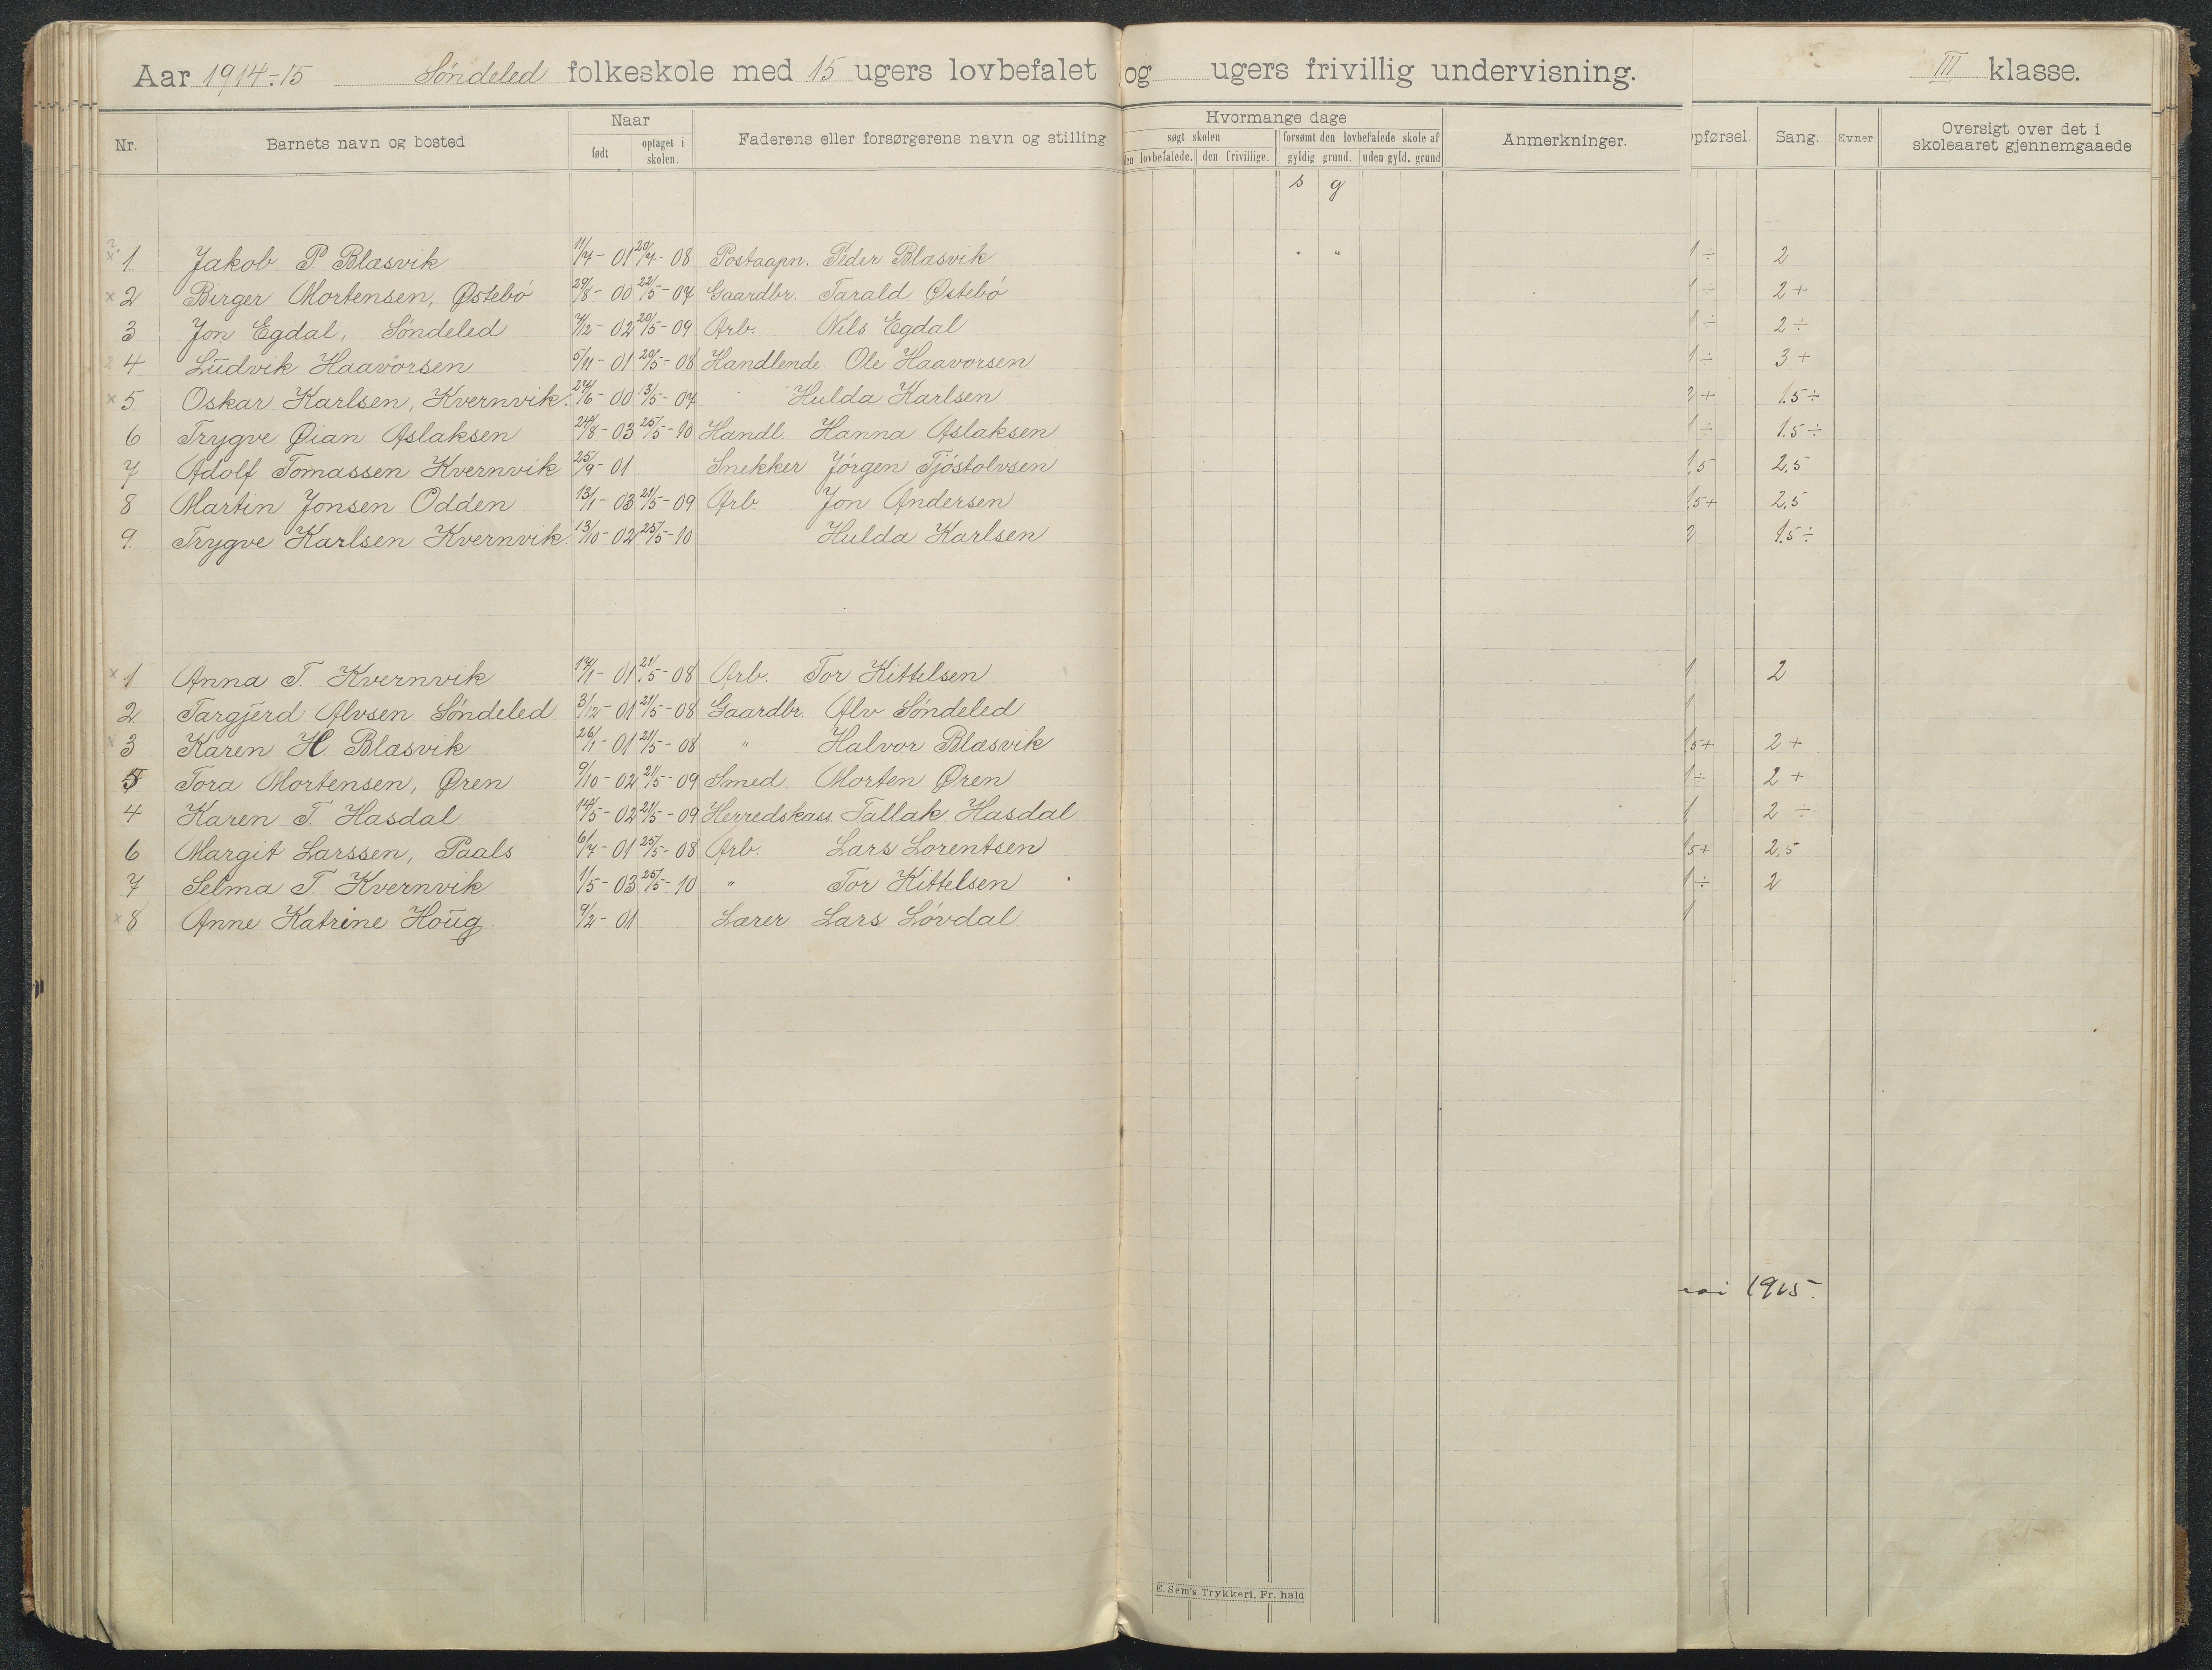 Aar 1914-15 Söndeled folkeskole med 15 ugers lovbefalet og ugers frivillig undervisning. III klasse.
Nr. Barnets navn og bosted Naar født optaget i skolen. Faderens eller forsørgerens navn og stilling Hvormange dage søgt skolen den lovbefalede. den frivillige. forsømt den lovbefalede skole af gyldig grund. uden gyld. grund Anmerkninger. pførsel. Sang. Evner Oversigt over det i skoleaaret gjennemgaaede
s g
1 Jakob P. Blæsvik 11/7-01 20/4-08 Postaapn. Peder Blæsvik " " 1÷ 2
2 Birger Mortensen, Østebö 29/8-00 22/5-07 Gaardbr. Tarald Østebö 1÷ 2+
3 Jon Egdal, Söndeled 7/12-02 20/5-09 Arb. Nils Egdal 1÷ 2÷
4 Ludvik Haavorsen 5/11-01 20/5-08 Handlende Ole Haavorsen 1÷ 3+
5 Oskar Karlsen, Kvernvik. 27/6-00 13/5-07 Hulda Karlsen 2+ 1.5÷
6 Trygve Øian Aslaksen 24/8-03 25/5-10 Handl. Hanna Aslaksen 1÷ 1.5÷
7 Adolf Tomassen Kvernvik 25/9-01 Snekker Jörgen Tjöstolvsen 1,5 2,5
8 Martin Jonsen Odden 13/1-03 21/5-09 Arb Jon Andersen 1.5+ 2,5
9. Trygve Karlsen Kvernvik 13/10-02 25/5-10 Hulda Karlsen 2 1.5÷
1 Anna T. Kvernvik 17/1-01 21/5-08 Arb. Tor Kittelsen 1 2
2 Targjerd Alvsen Söndeled 3/12-01 21/5-08 Gaardbr. Alv Söndeled 1
3 Karen H Blæsvik 26/1-01 21/5-08 " Halvor Blæsvik 1.5+ 2+
5 Tora Mortensen, Øren 9/10-02 21/5-09 Smed Morten Øren 1÷ 2+
4 Karen T. Hasdal 14/5-02 21/5-09 Herredskass. Tallak Hasdal 1 2÷
6 Margit Larssen, Paals 6/7-01 25/5-08 Arb. Lars Lorentsen 1.5+ 2,5
7 Selma T. Kvernvik 1/5-03 25/5-10 " Tor Kittelsen 1÷ 2
8 Anne Katrine Houg 9/2-01 Lærer Lars Lövdal 1
mai 1915.
E. Sem's Trykkeri, Fr. hald